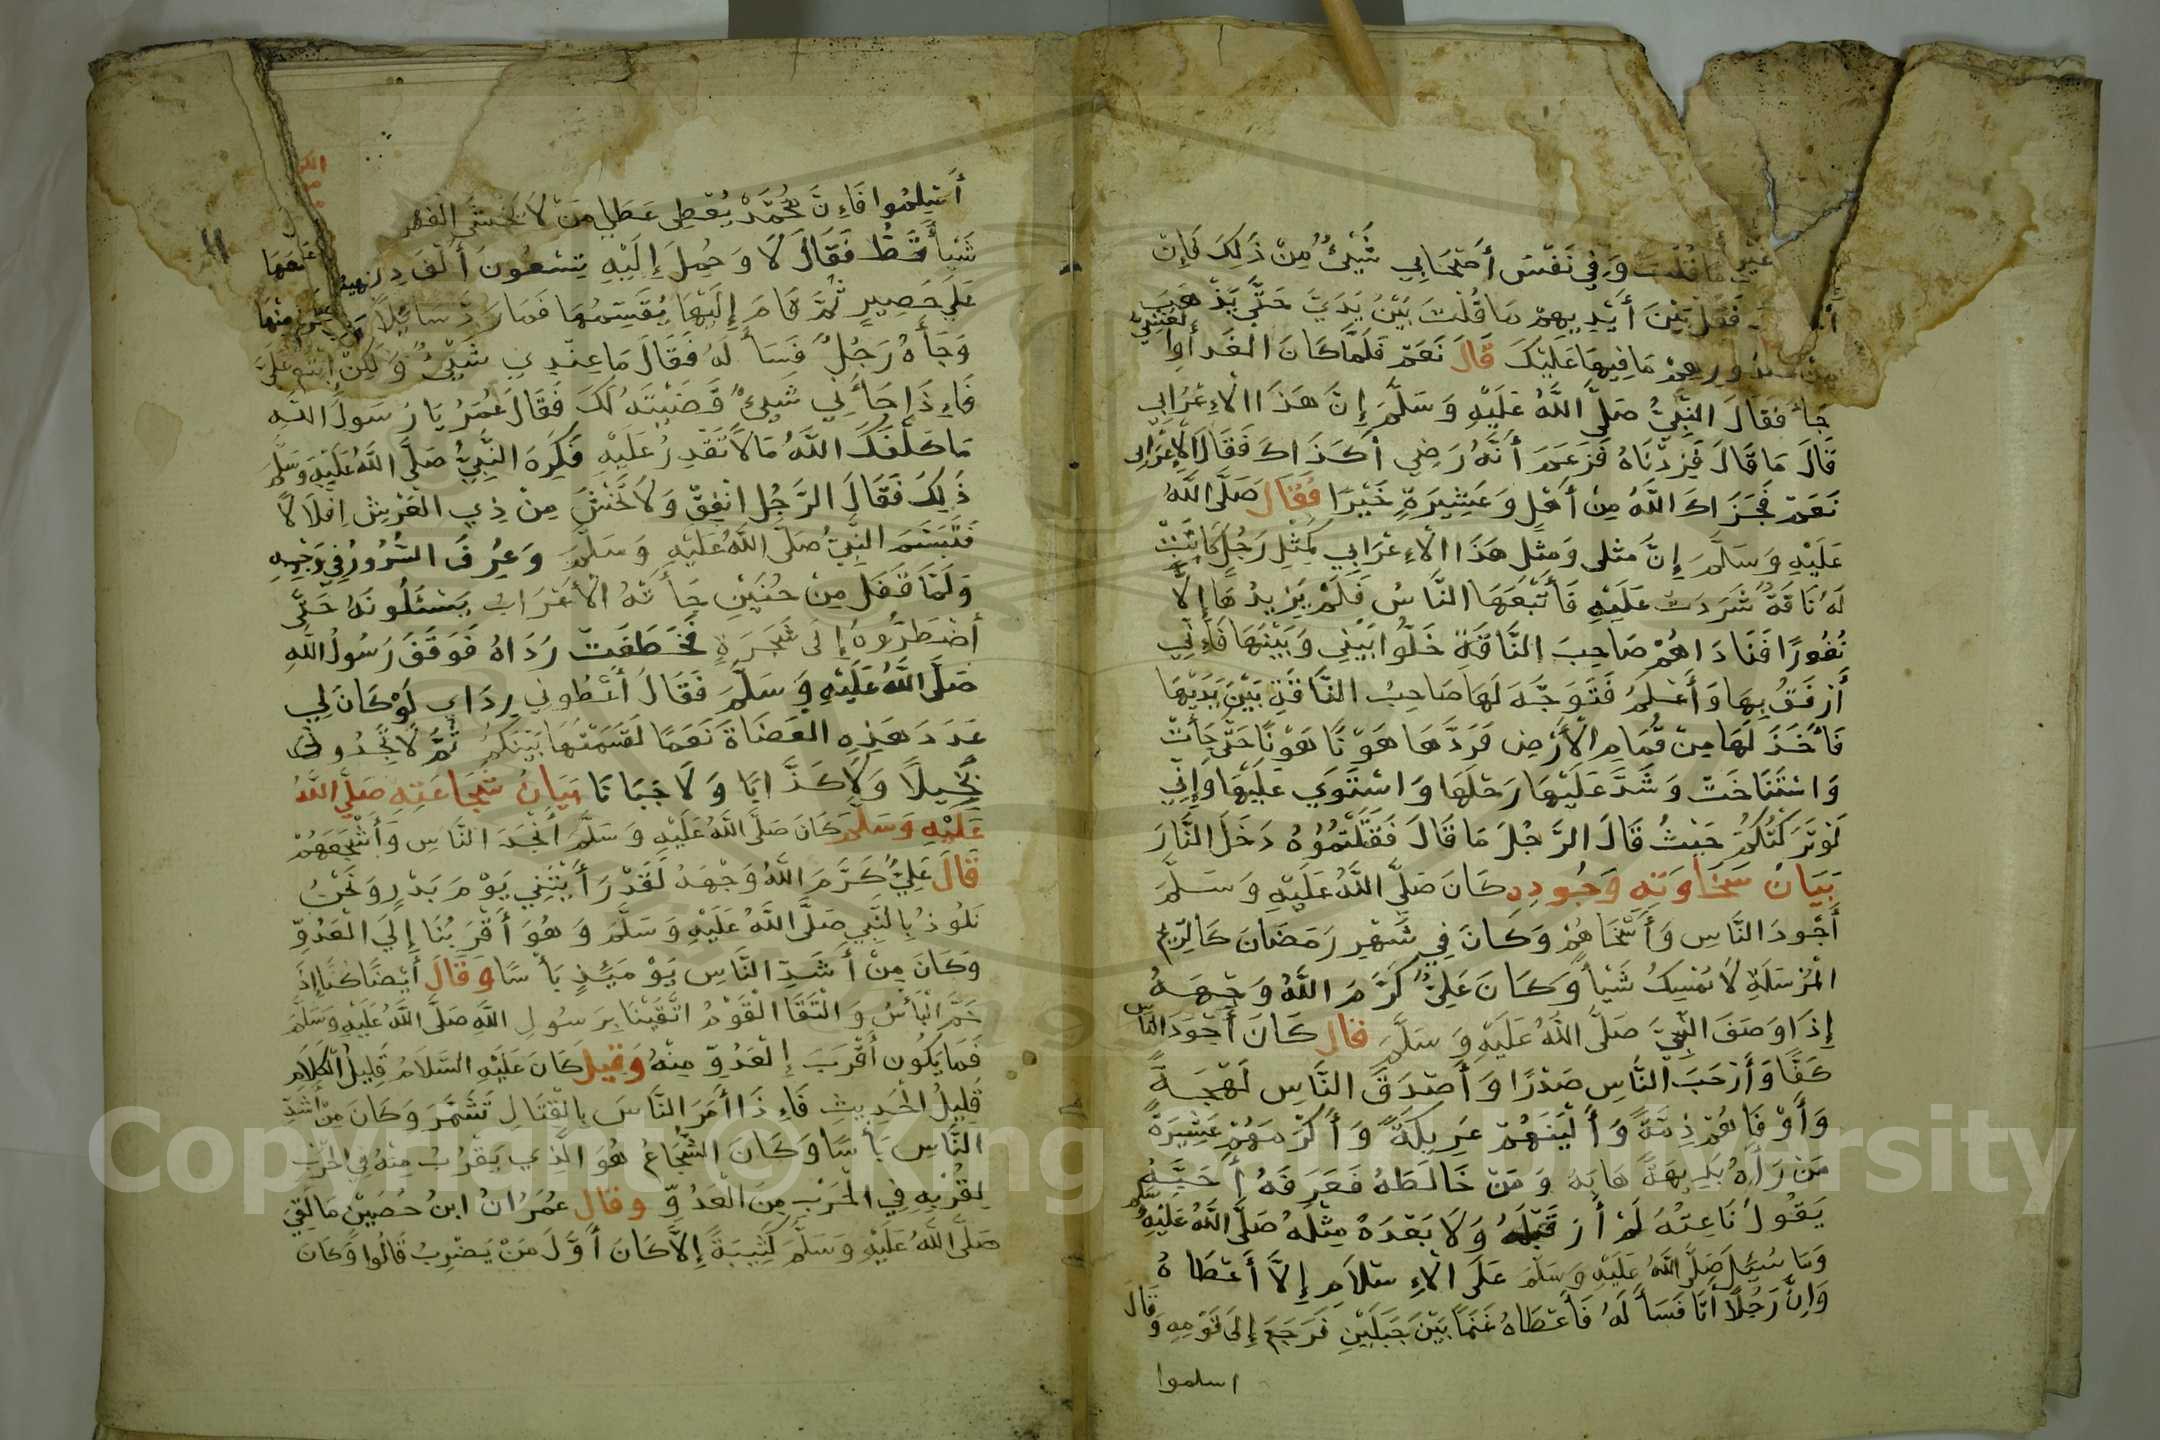 قُلْتَ وَفِي نَفْسِ أَصْحَابِي شَيْئٌ مِنْ ذَلِكَ فَإِنْ
فَقُلْ بَيْنَ أَيْدِيهِمْ مَا قُلْتَ بَيْنَ يَدَيَّ حَتَّى يَذْهَبَ
مِنْ صُدُورِهِمْ مَا فِيهَا عَلَيْكَ قَالَ نَعَمْ فَلَمَّا كَانَ الغَدُ أَوِ العَشِيُّ
جَاءَ فَقَالَ النَّبِيُّ صَلَّى اللَّهُ عَلَيْهِ وَسَلَّمَ إِنَّ هَذَا الْاِعْرَابِي
قَالَ مَا قَالَ فَزِدْنَاهُ فَزَعَمَ أَنَّهُ رَضِي أَكَذَاكَ فَقَالَ الْأَعْرَابِي
نَعَمْ فَجَزَاكَ اللَّهُ مِنْ أَهْلٍ وَعَشِيرَةٍ خَيْرًا فَقَالَ صَلَّى اللَّهُ
عَلَيْهِ وَسَلَّمَ إِنَّ مثلى وَمِثْلِ هَذَا الْاِعْرَابِي كَمَثَلِ رَجُلٍ كَانَتْ
لَهُ نَاقَةٌ شَرَدَتْ عَلَيْهِ فَأَتْبَعَهَا النَّاسُ فَلَمْ يَزِيدُهَا إِلَّا
نُفُورًا فَنَادَاهُمْ صَاحِبَ النَّاقَةِ خَلُّوا بَيْنِي وَبَيْنَهَا فَإِنِّي
أَرْفَقُ بِهَا وَأَعْلَمُ فَتَوَجَّهَ لَهَا صَاحِبُ النَّاقَةِ بَيْنَ يَدَيْهَا
فَأَخَذَ لَهَا مِنْ قُمَامِ الْأَرْضِ فَرَدَّهَا هَوْنًا هَوْنًا حَتَّى جَأَتْ
وَاسْتَنَاخَتْ وَشَدَّ عَلَيْهَا رَحْلَهَا وَاسْتَوَي عَلَيْهَا وَإِنِّي
لَوْ تَرَكْتُكُمْ حَيْثُ قَالَ الرَّجُلَ مَا قَالَ فَقَتَلْتُمُوْهُ دَخَلَ النَّارَ
بَيَانُ سَخَاوَتِهِ وَجُودِهِ كَانَ صَلَّى اللَّهُ عَلَيْهِ وَسَلَّمَ
أَجْوَدَ النَّاسِ وَأَسْخَاهُمْ وَكَانَ فِي شَهْرِ رَمَضَانَ كَالرِّيحِ
الْمُرْسَلَةِ لَا يُمْسِكُ شَيْأً وَكَانَ عَلِيٌّ كَرَّمَ اللَّهُ وَجْهَهُ
إِذَا وَصَفَ النَّبِيَّ صَلَّى اللَّهُ عَلَيْهِ وَسَلَّمَ قال كَانَ أَجْوَدَ النَّاسِ
كَفًّا وَأَرْحَبَ النَّاسِ صَدْرًا وَأَصْدَقَ النَّاسِ لَهْجَةً
وَأَوْفَاهُمْ ذِمَّةً وَأَلْيَنَهُمْ عَرِيكَةً وَأَكْرَمَهُمْ عَشِيْرَةً
مَنْ رَأَهُ بَدِيهَةً هَابَهُ وَمَنْ خَالَطَهُ فَعَرَفَهُ أَحَبَّهُ
يَقُولُ نَاعِتُهُ لَمْ أَرَ قَبْلَهُ وَلَا بَعْدَهُ مِثْلَهُ صَلَّى اللَّهُ عَلَيْهِ وَسَلَّمَ
وَمَا سُئِلَ صَلَّى اللَّهُ عَلَيْهِ وَسَلَّمَ عَلَى الْاِسْلَامِ إِلَّا أَعْطَاهُ
وَإِنَّ رَجُلًا أَتَا فَسَأَلَهُ فَأَعْطَاهُ غَنَمًا بَيْنَ جَبَلَيْنِ فَرَجَعَ إِلَى قَوْمِهِ وَقَالَ
اسلموا
أَسْلِمُوا فَإِنَّ مُحَمَّدًا يُعْطِي عَطَايَا مَنْ لَا يَخْشَى الفقر
شَيْأً قَطُّ فَقَالَ لَا وَحُمِلَ إِلَيْهِ تِسْعُونَ أَلْفَ دِرْهَمٍ
عَلَى حَصِيرٍ ثُمَّ قَامَ إِلَيْهَا يُقَسِّمُهَا فَمَا رَدَّ سَائِلًا
وَجَأَهُ رَجُلٌ فَسَأَلَهُ فَقَالَ مَا عِنْدِي شَيْئٌ وَلَكِنْ ابْتَعْ عَلَيَّ
فَإِذَا جَأَنِي شَيْئٌ قَضَيْتُهُ لَكَ فَقَالَ عُمَرُ يَا رَسُولَ اللَّهِ
مَا كَلَّفَكَ اللَّهُ مَا لَا تَقْدِرُ عَلَيْهِ فَكَرِهَ النَّبِيُّ صَلَّى اللَّهُ عَلَيْهِ وَسَلَّمَ
ذَلِكَ فَقَالَ الرَّجُلِ انْفِقْ وَلَا تَخْشَ مِنْ ذِي الْعَرْشِ اِقْلَالًا
فَتَبَسَّمَ النَّبِيُّ صَلَّى اللَّهُ عَلَيْهِ وَسَلَّمَ وَعُرِفَ السُّرُورُ فِي وَجْهِهِ
وَلَمَّا قَفَلَ مِنْ حُنَيْنٍ جَأَتْهُ الْأَعْرَابُ يَسْئَلُونَهُ حَتَّى
أَضْطَرُّوهُ إِلَى شَجَرَةٍ فَخَطَفَتْ رِدَاهُ فَوَقَفَ رَسُولُ اللَّهِ
صَلَّى اللَّهُ عَلَيْهِ وَسَلَّمَ فَقَالَ أَعْطُونِي رِدَاي لَوْ كَانَ لِي
عَدَدَ هَذِهِ الْعَضَاةِ نَعَمًا لَقَسَمْتُهَا بَيْنَكُمْ ثُمَّ لَا تَجِدُونِي
بَخِيلًا وَلَا كَذَّابًا وَلَا جَبَانًا بَيَانُ شَجَاعَتِهِ صَلَّى اللَّهُ
عَلَيْهِ وَسَلَّمَ كَانَ صَلَّى اللَّهُ عَلَيْهِ وَسَلَّمَ أَنْجَدَ النَّاسِ وَأَشْجَعَهُمْ
قَالَ عَلِيٌّ كَرَّمَ اللَّهُ وَجْهَهُ لَقَدْ رَأَيْتُنِي يَوْمَ بَدْرٍ وَنَحْنُ
نَلُوذُ بِالنَّبِي صَلَّى اللَّهُ عَلَيْهِ وَسَلَّمَ وَهُوَ أَقْرَبُنَا إِلَى الْعَدُوِّ
وَكَانَ مِنْ أَشَدِّ النَّاسِ يَوْمَئِذٍ بَأْسًا وَقَالَ أَيْضًا كُنَّا إِذَ
حَمَّ الْبَأْسُ وَالْتَقَا الْقَوْمُ اتَّقَيْنَا بِرَسُولِ اللَّهِ صَلَّى اللَّهُ عَلَيْهِ وَسَلَّمَ
فَمَا يَكُون أَقْرَبَ إِلْعَدُوِّ مِنْهُ وَقِيلَ كَانَ عَلَيْهِ السَّلَامُ قَلِيلُ الْكَلَامِ
قَلِيلُ الْحَدِيثِ فَإِذَا أَمَرَ النَّاسَ بِالْقِتَالِ تَشَمَّرَ وَكَانَ مِنْ أَشَدِّ
النَّاسِ بَأْسًا وَكَانَ الشُّجَاعُ هُوَ الَّذِي يَقْرُبُ مِنْهُ فِي الْحَرْبِ
لِقُرْبِهِ فِي الْحَرْبِ مِنَ الْعَدُوِّ وقال عُمْرَانُ ابنُ حُصَيْنٍ مَا لَقِيَ
صَلَّى اللَّهُ عَلَيْهِ وَسَلَّمَ كَتِيبَةً إِلَّا كَانَ أَوَّلَ مَنْ يَضْرِبُ قَالُوا وَكَانَ
Copyright © King Saud University